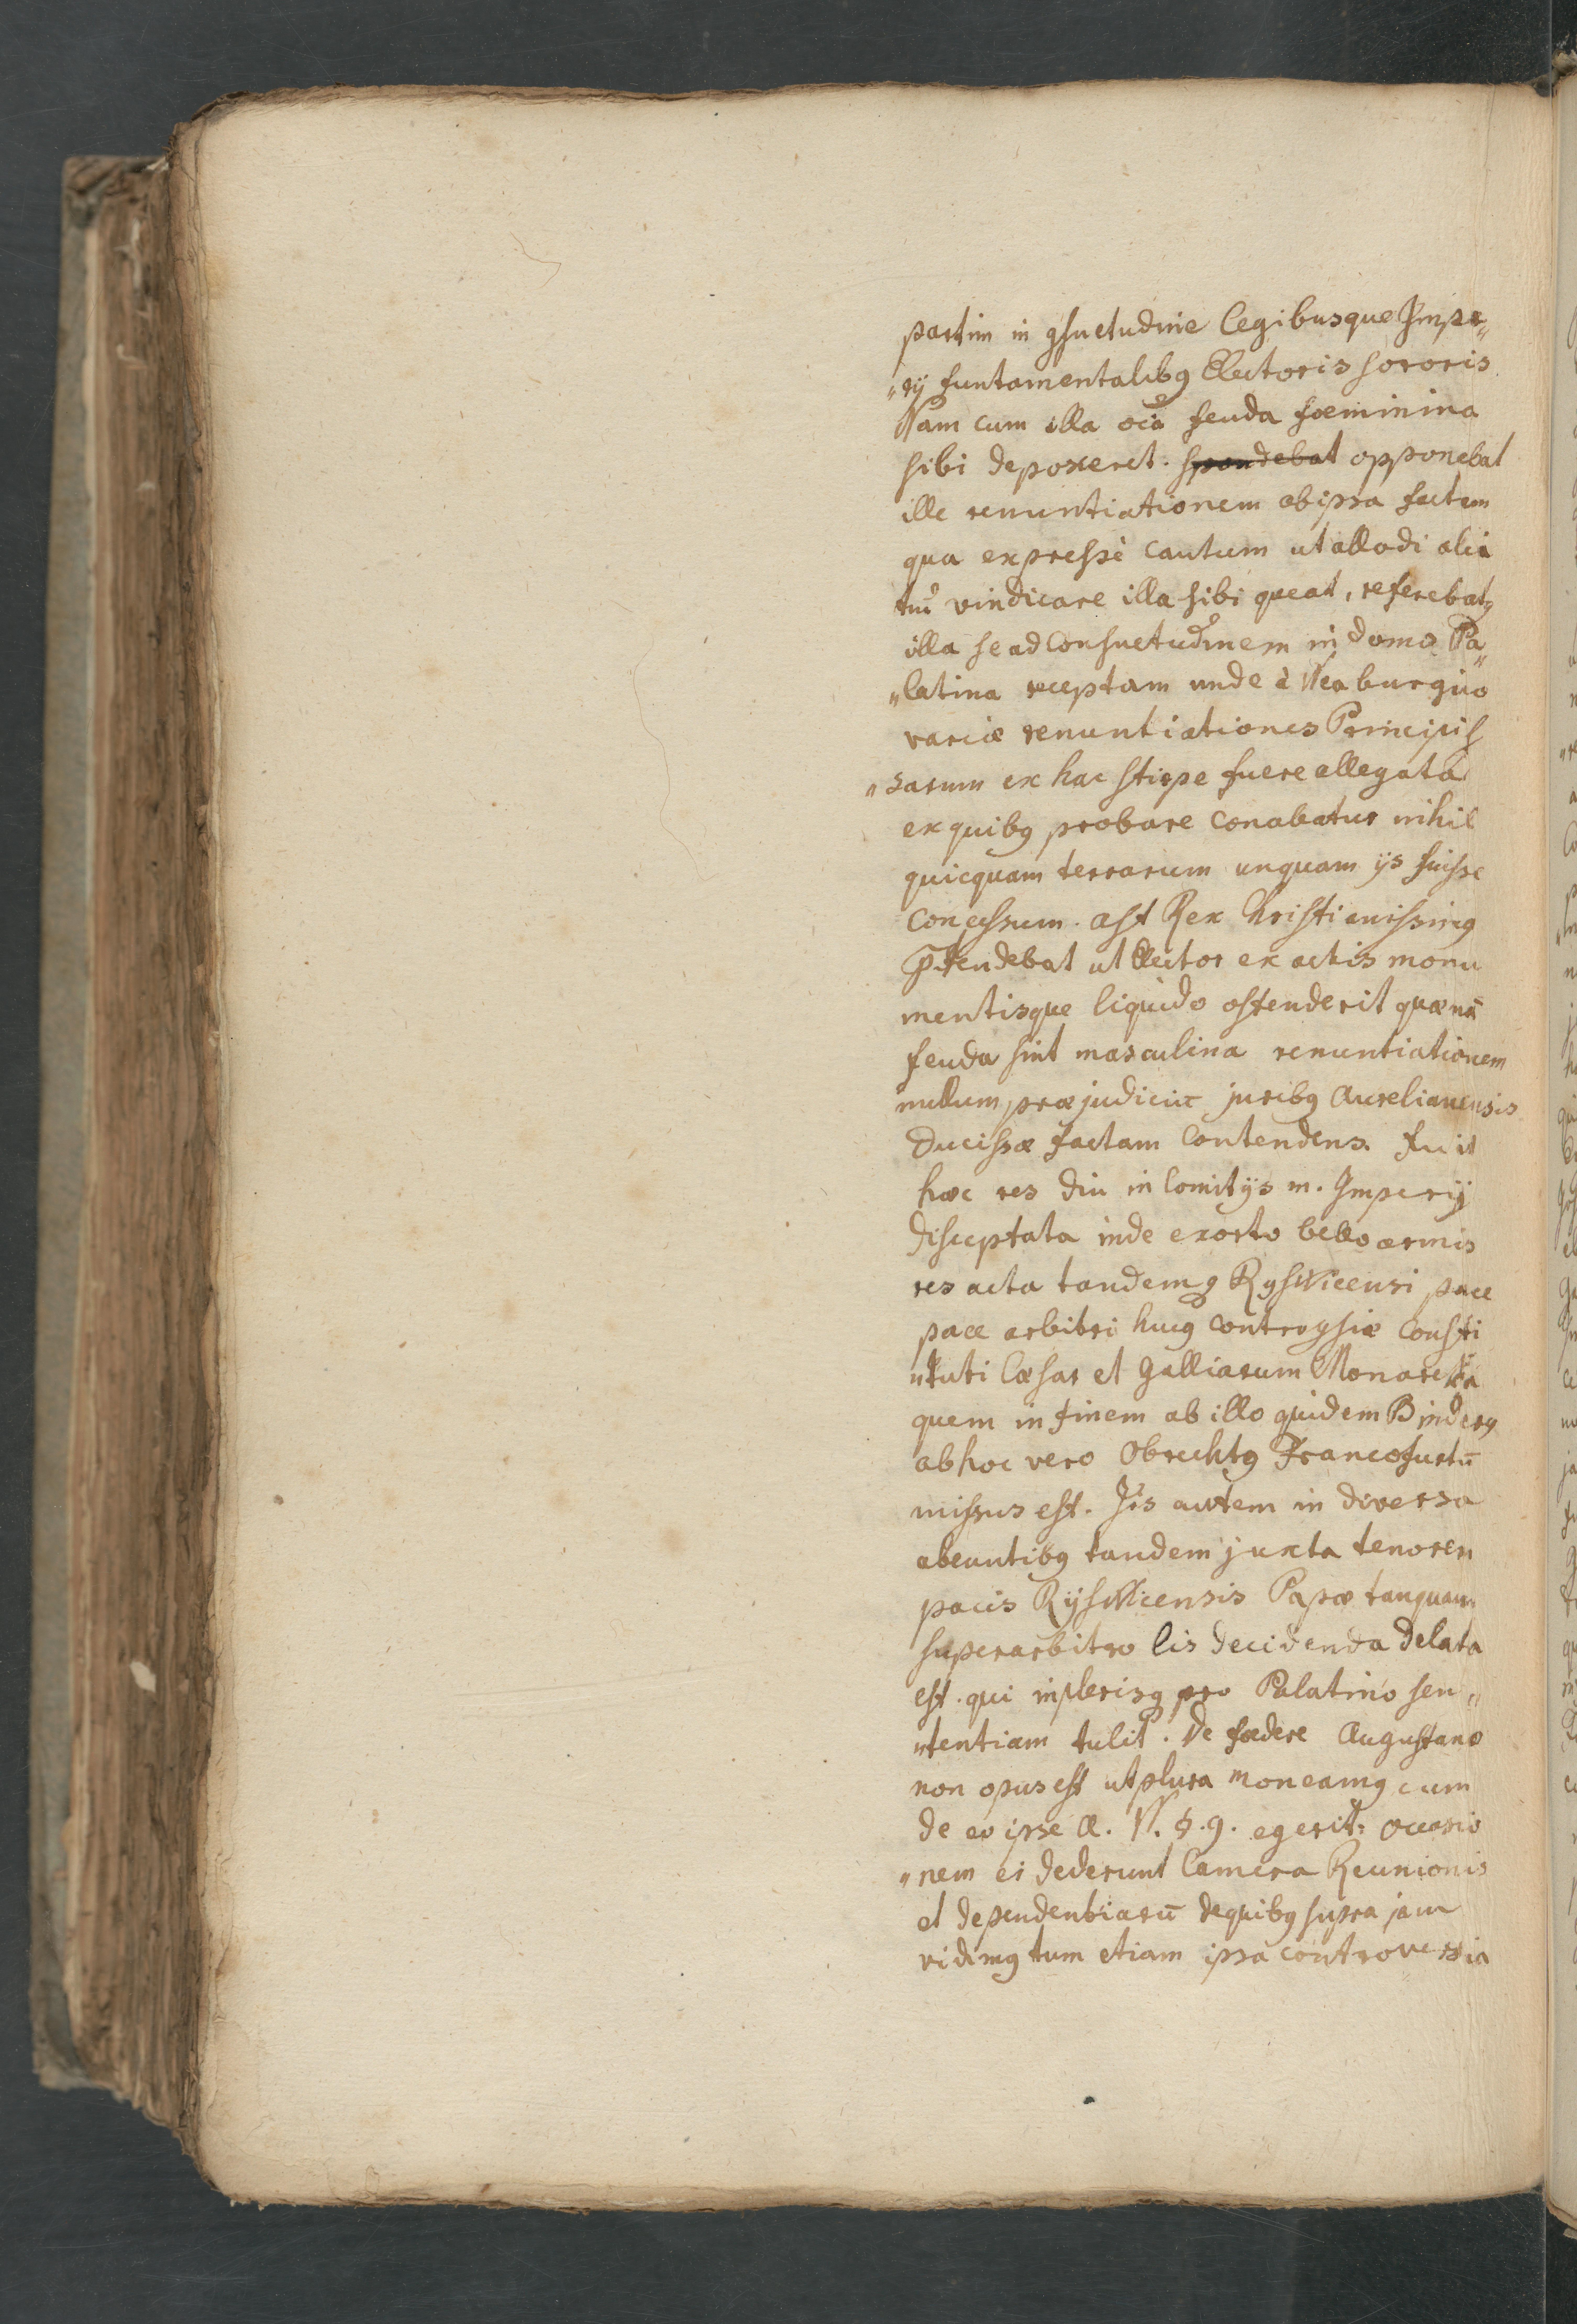 partim in gsuetudine legibusque Impe„
„rij funtamentalibg Electoris sororis
Nam cum illa oia feuda foeminina
sibi deposceret. spondebat opponebat
ille renuntiationem ab ipsa factam
qua expresse cautum ut allodialia
tm̃ vindicare illa sibi queat, referebatg
illa se ad consuetudinem in domo Pa„
„latina receptam unde à Neaburgico
variæ renuntiationes Principis
„sarum ex hac stirpe fuere allegata
ex quibg probare conabatur nihil
quicquam terrarum unquam ijs fuisse
concessum. ast Rex Christianissimg
Ptendebat ut Elector ex actis monu
mentisque liquido ostenderit quænã
feuda sint masculina renuntiationem
nullum præjudiciũ juribg Aurelianensis
Ducissæ factam contendens. Fuit
hæc res diu in Comitijs m. Imperij
disceptata inde exorto bello armis
res acta tandemg Ryswicensi pace
pace arbitri hucg controgsiæ consti
„tuti Cæsar et Galliarum Monarcha
quem in finem ab illo quidem Binderg
ab hoc vero Obrechtg Francofurtũ
missus est. Iis autem in diversa
abeuntibg tandem juxta tenorem
pacis Ryswicensis Papæ tanquam
superarbitro lis decidenda delata
est. qui in plerisg pro Palatino sen„
„tentiam tulit. De fœdere Augustano
non opus est ut plura moneamg cum
de eo ipse A. N. §. 9. egerit: occasio
„nem ei dederunt Camera Reunionis
et dependentiarũ de quibg supra jam
vidimg tum etiam ipsa controversia